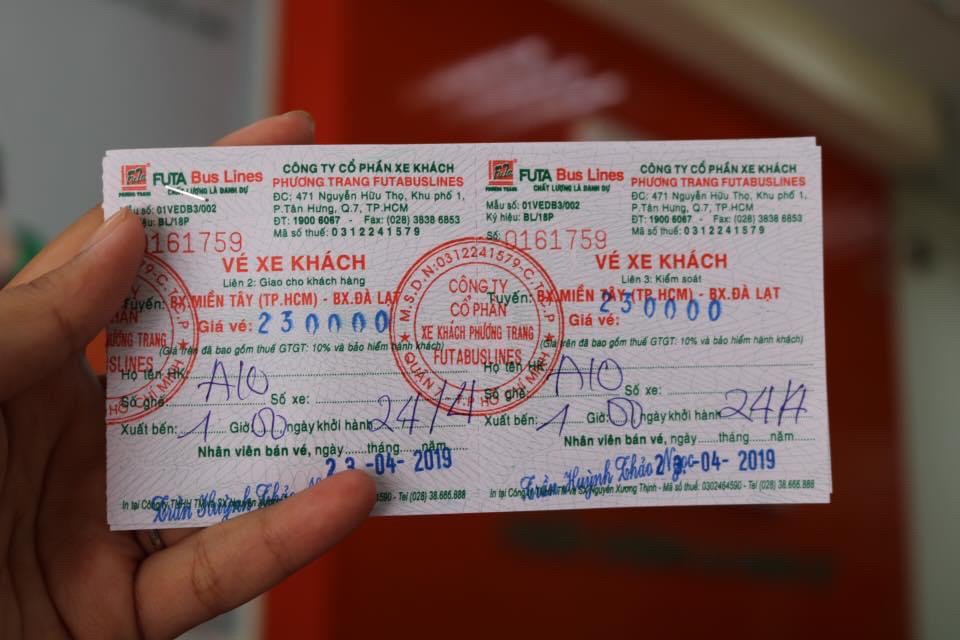 FUTA Bus Lines
CHẤT LƯỢNG LÀ DANH DỰ
PHƯƠNG TRANG
CÔNG TY CỔ PHẦN XE KHÁCH
PHƯƠNG TRANG FUTABUSLINES
ĐC: 471 Nguyễn Hữu Thọ, Khu phố 1,
P.Tân Hưng, Q.7, TP.HCM
ĐT: 1900 6067 - Fax: (028) 3838 6853
Mã số thuế: 0312241579
Mẫu số: 01VEDB3/002
BL/18P
0161759
VÉ XE KHÁCH
Liên 2: Giao cho khách hàng
Tuyến: BX.MIỀN TÂY (TP.HCM) - BX.ĐÀ LẠT
Giá vé: 230000
(Giá trên đã bao gồm thuế GTGT: 10% và bảo hiểm hành khách)
Họ tên HK:
Số ghế: A10 Số xe:
Xuất bến: 1 Giờ 00 ngày khởi hành 24/4
Nhân viên bán vé, ngày......tháng......năm
23-04-2019
Trần Huỳnh Thảo
- Tel (028) 38.666.888
FUTA Bus Lines
CHẤT LƯỢNG LÀ DANH DỰ
PHƯƠNG TRANG
CÔNG TY CỔ PHẦN XE KHÁCH
PHƯƠNG TRANG FUTABUSLINES
ĐC: 471 Nguyễn Hữu Thọ, Khu phố 1,
P.Tân Hưng, Q.7, TP.HCM
ĐT: 1900 6067 - Fax: (028) 3838 6853
Mã số thuế: 0312241579
Mẫu số: 01VEDB3/002
Ký hiệu: BL/18P
Số: 0161759
VÉ XE KHÁCH
Liên 3: Kiểm soát
Tuyến: BX.MIỀN TÂY (TP.HCM) - BX.ĐÀ LẠT
Giá vé: 230000
(Giá trên đã bao gồm thuế GTGT: 10% và bảo hiểm hành khách)
Họ tên HK:
Số ghế: A10 Số xe:
Xuất bến: 1 Giờ 00 ngày khởi hành 24/4
Nhân viên bán vé, ngày......tháng......năm
-04-2019
Trần Huỳnh Thảo Ngọc
Nguyễn Xương Thịnh - Mã số thuế: 0302464590 - Tel (028) 38.666.888
M.S.D.N:0312241579-C.T.C.P
CÔNG TY
CỔ PHẦN
XE KHÁCH PHƯƠNG TRANG
FUTABUSLINES